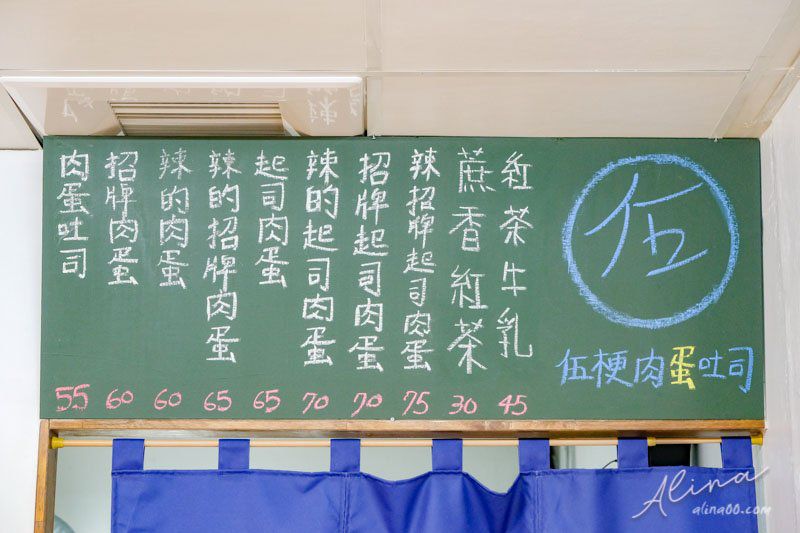 伍
伍梗肉蛋吐司
紅茶牛乳
45
蔗香紅茶
30
辣招牌起司肉蛋
75
招牌起司肉蛋
70
辣的起司肉蛋
70
起司肉蛋
65
辣的招牌肉蛋
65
辣的肉蛋
60
招牌肉蛋
60
肉蛋吐司
55
Alina
alina00.com